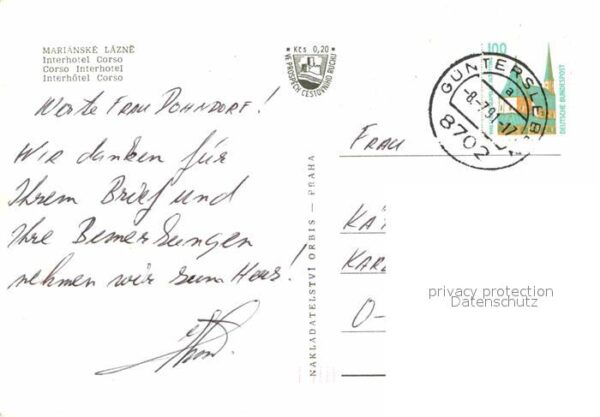 MARIANSKÉ LÁZNĚ
Interhotel Corso
Corso Interhotel
Interhôtel Corso
Kčs 0,20
VE PROSPĚCH CESTOVNÍHO RUCHU
100
DEUTSCHE BUNDESPOST
GÜNTERSLEB
a
-8.-7.91-17
8702
Werte Frau Dohndorf!
Wir danken für
Ihrem Brief und
Ihre Bemerkungen
nehmen wir zum Herz!
NAKLADATELSTVÍ ORBIS — PRAHA
Frau
KÄ
KAR
O-
privacy protection
Datenschutz